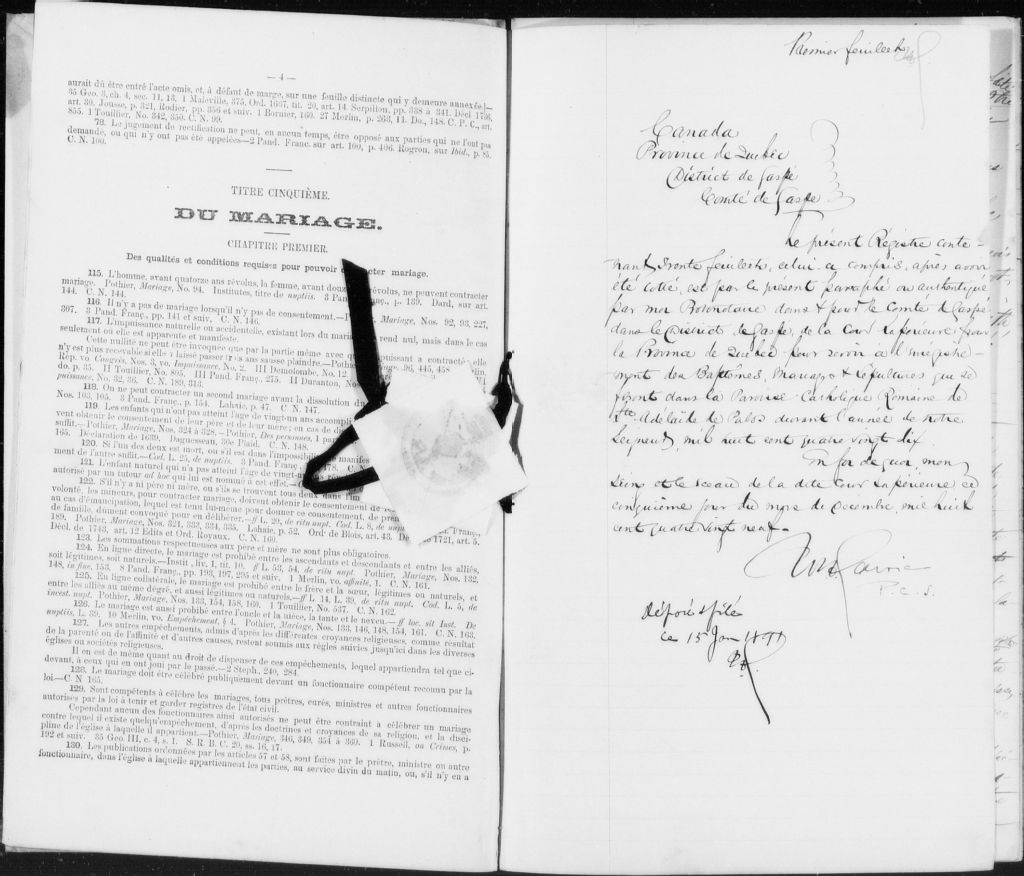 — 4 —
aurait dû être entré l'acte omis, et, à défaut de marge, sur une feuille distincte qui y demeure annexée.—
35 Geo. 3, ch. 4, sec. 11, 13. 1 Maleville, 375, Ord. 1667, tit. 20, art. 14 Serpillon, pp. 338 à 341. Décl 1736,
art. 30. Jousse, p. 321, Rodier, pp. 356 et suiv. 1 Bornier, 160. 27 Merlin, p. 263, 11. Do., 148. C. P. C., art.
855. 1 Toullier, No. 342, 350. C. N. 99.
78. Le jugement de rectification ne peut, en aucun temps, être opposé aux parties qui ne l'ont pas
demandé, ou qui n'y ont pas été appelées—2 Pand. Franc. sur art. 100, p. 406. Rogron, sur Ibid., p. 85.
C. N. 100.
TITRE CINQUIÈME.
DU MARIAGE.
CHAPITRE PREMIER.
Des qualités et conditions requises pour pouvoir contracter mariage.
115. L'homme, avant quatorze ans révolus, la femme, avant douze révolus, ne peuvent contracter
mariage. Pothier, Mariage, No. 94. Institutes, titre de nuptiis. 3 Pand p. 139. Dard, sur art.
144. C. N. 144.
116. Il n'y a pas de mariage lorsqu'il n'y pas de consentement.— Mariage, Nos. 92, 93, 227,
307. 3 Pand. Franç., pp. 141 et suiv. C. N. 146.
117. L'impuissance naturelle ou accidentelle, existant lors du mariage rend nul, mais dans le cas
seulement où elle est apparente et manifeste.
Cette nullité ne peut être invoquée que par la partie même avec qui puissant a contracté; elle
n'y est plus recevable si elle a laissé passer trois ans sans se plaindre.—Poth 96, 445, 458
Rép. vo Congrès, Nos. 3, vo. Impuissance, No. 2. III Demolombe, No. 12.
do. p. 35. II Toullier, No. 805. III Pand. Franç. 275. II Duranton, Nos
puissance, No. 32, 36. C. N. 180, 313.
118. On ne peut contracter un second mariage avant la dissolution du
Nos. 103, 105. 3 Pand. Franç., p. 154. Lahaie, p. 47. C. N. 147.
119. Les enfants qui n'ont pas atteint l'âge de vingt-un ans accompli
vent obtenir le consentement de leur père et de leur mère; en cas de
suffit.—Pothier, Mariage, Nos. 324 à 328.—Pothier, Des personnes, 1 par
165. Déclaration de 1639. Daguesseau, 30e Plaid. C. N. 148.
120. Si l'un des deux est mort, ou s'il est dans l'impossibilité de manifes
ment de l'autre suffit.—Cod. L. 25, de nuptiis. 3 Pand. Franç 178. C. N
121. L'enfant naturel qui n'a pas atteint l'âge de vingt-un
autorisé par un tuteur ad hoc qui lui est nommé à cet effet.—
122. S'il n'y a ni père ni mère, ou s'ils se trouvent tous deux dans l'im
volonté, les mineurs, pour contracter mariage, doivent obtenir le consentement de
au cas d'émancipation, lequel est tenu lui-même pour donner ce consentement, de pren
de famille, dûment convoqué pour en délibérer.—ff L. 20, de ritu nupt. Cod. L. 8, de nup
189. Pothier, Mariage, Nos. 321, 333, 334, 335. Lahaie, p. 52. Ord de Blois, art. 43. Dé 1721, art. 5.
Décl. de 1743, art. 12 Edits et Ord. Royaux. C. N. 160.
123. Les sommations respectueuses aux père et mère ne sont plus obligatoires.
124. En ligne directe, le mariage est prohibé entre les ascendants et descendants et entre les alliés,
soit légitimes, soit naturels.—Instit, liv. 1, tit. 10. ff L. 53, 54, de ritu nupt. Pothier, Mariage, Nos. 132,
148, in fine, 153. 3 Pand. Franç., pp. 193, 197, 295 et suiv. 1 Merlin, vo. affinité, 1. C. N. 161.
125. En ligne collatérale, le mariage est prohibé entre le frère et la sœur, légitimes ou naturels, et
entre les alliés au même degré, et aussi légitimes ou naturels.—ff L. 14, L. 39, de ritu nupt. Cod. L. 5, de
incest. nupt. Pothier, Mariage, Nos. 133, 154, 158, 160. 1 Toullier, No. 537. C. N. 162.
126. Le mariage est aussi prohibé entre l'oncle et la nièce, la tante et le neveu.—ff loc. sit Inst. De
nuptiis, L. 39. 10 Merlin, vo. Empêchement, § 4. Pothier, Mariage, Nos. 133, 146, 148, 154, 161. C. N. 163.
127. Les autres empêchements, admis d'après les différentes croyances religieuses, comme résultat
de la parenté ou de l'affinité et d'autres causes, restent soumis aux règles suivies jusqu'ici dans les diverses
églises ou sociétés religieuses.
Il en est de même quant au droit de dispenser de ces empêchements, lequel appartiendra tel que ci-
devant, à ceux qui en ont joui par le passé.—2 Steph., 240, 284.
128. Le mariage doit être célébré publiquement devant un fonctionnaire compétent reconnu par la
loi—C. N 165.
129. Sont compétents à célébre les mariages, tous prêtres, curés, ministres et autres fonctionnaires
autorisés par la loi à tenir et garder registres de l'état civil.
Cependant aucun des fonctionnaires ainsi autorisés ne peut être contraint à célébrer un mariage
contre lequel il existe quelqu'empêchement, d'après les doctrines et croyances de sa religion, et la disci-
pline de l'église à laquelle il appartient.—Pothier, Mariage, 346, 349, 354 à 360. 1 Russell, on Crimes, p.
192 et suiv. 35 Geo. III, c. 4, s. 1. S. R. B. C. 20, ss. 16, 17.
130. Les publications ordonnées par les articles 57 et 58, sont faites par le prêtre, ministre ou autre
fonctionnaire, dans l'église à laquelle appartiennent les parties, au service divin du matin, ou, s'il n'y en a
Premier feuillet
Canada
Province de Québec
District de Gaspé
Comté de Gaspé
Le présent Régistre conte-
nant trente feuillets, celui-ci compris, après avoir
été coté, est par le présent paraphé ou authentiqué
par moi Protonotaire dans & pour le Comté de Gaspé
dans le District de Gaspé, de la Cour Supérieure pour
la Province de Québec pour servir à l'enregistre-
ment des Baptêmes, Mariages & sépultures qui se
feront dans la Paroisse Catholique Romaine de
Ste Adelaïde de Pabos durant l'année de notre
Seigneur, mil huit cent quatre vingt dix
En foi de quoi, mon
seing et le sceau de la dite Cour Supérieure, ce
cinquième jour du mois de Decembre, mil huit
cent quatre vingt neuf.
P. C. S.
Déposé & filé
ce 15 Jan 1891